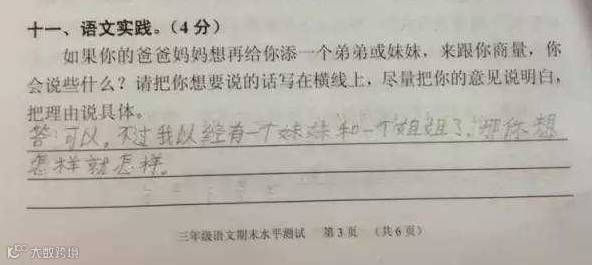 十一、语文实践。(4分)
如果你的爸爸妈妈想再给你添一个弟弟或妹妹，来跟你商量，你
会说些什么？请把你想要说的话写在横线上，尽量把你的意见说明白，
把理由说具体。
答：可以，不过我以经有一个妹妹和一个姐姐了，你想
怎样就怎样。
三年级语文期末水平测试 第3页 (共6页)
大数跨境